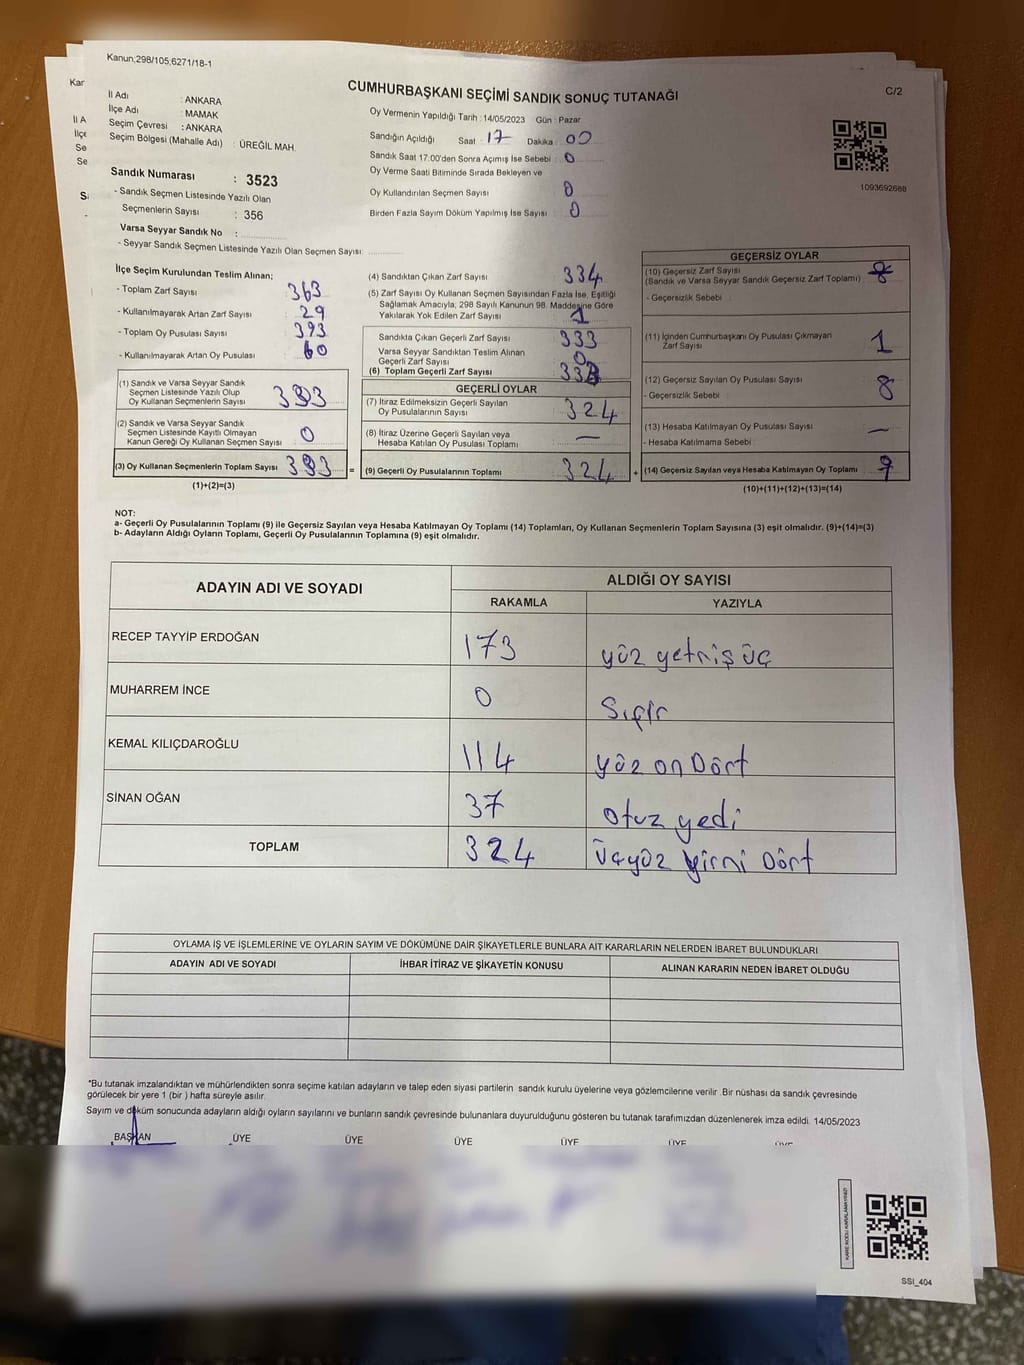 Kanun;298/105,6271/18-1
CUMHURBAŞKANI SEÇİMİ SANDIK SONUÇ TUTANAĞI
C/2
İl Adı : ANKARA
İlçe Adı : MAMAK
Seçim Çevresi : ANKARA
Seçim Bölgesi (Mahalle Adı) : ÜREĞİL MAH.
Sandık Numarası : 3523
- Sandık Seçmen Listesinde Yazılı Olan
Seçmenlerin Sayısı : 356
Varsa Seyyar Sandık No :
- Seyyar Sandık Seçmen Listesinde Yazılı Olan Seçmen Sayısı:
Oy Vermenin Yapıldığı Tarih : 14/05/2023 Gün : Pazar
Sandığın Açıldığı Saat : 17 Dakika : 00
Sandık Saat 17:00'den Sonra Açımış İse Sebebi : 0
Oy Verme Saati Bitiminde Sırada Bekleyen ve
Oy Kullandırılan Seçmen Sayısı : 0
Birden Fazla Sayım Döküm Yapılmış İse Sayısı : 0
1093692688
İlçe Seçim Kurulundan Teslim Alınan;
- Toplam Zarf Sayısı : 363
- Kullanılmayarak Artan Zarf Sayısı : 29
- Toplam Oy Pusulası Sayısı : 393
- Kullanılmayarak Artan Oy Pusulası : 60
(1) Sandık ve Varsa Seyyar Sandık
Seçmen Listesinde Yazılı Olup
Oy Kullanan Seçmenlerin Sayısı : 333
(2) Sandık ve Varsa Seyyar Sandık
Seçmen Listesinde Kayıtlı Olmayan
Kanun Gereği Oy Kullanan Seçmen Sayısı : 0
(3) Oy Kullanan Seçmenlerin Toplam Sayısı : 333
(1)+(2)=(3)
(4) Sandıktan Çıkan Zarf Sayısı : 334
(5) Zarf Sayısı Oy Kullanan Seçmen Sayısından Fazla İse, Eşitliği
Sağlamak Amacıyla; 298 Sayılı Kanunun 98. Maddesine Göre
Yakılarak Yok Edilen Zarf Sayısı : 1
Sandıkta Çıkan Geçerli Zarf Sayısı : 333
Varsa Seyyar Sandıktan Teslim Alınan
Geçerli Zarf Sayısı : 0
(6) Toplam Geçerli Zarf Sayısı : 333
GEÇERLİ OYLAR
(7) İtiraz Edilmeksizin Geçerli Sayılan
Oy Pusulalarının Sayısı : 324
(8) İtiraz Üzerine Geçerli Sayılan veya
Hesaba Katılan Oy Pusulası Toplamı : —
= (9) Geçerli Oy Pusulalarının Toplamı : 324 +
GEÇERSİZ OYLAR
(10) Geçersiz Zarf Sayısı
(Sandık ve Varsa Seyyar Sandık Geçersiz Zarf Toplamı) :
- Geçersizlik Sebebi :
(11) İçinden Cumhurbaşkanı Oy Pusulası Çıkmayan
Zarf Sayısı : 1
(12) Geçersiz Sayılan Oy Pusulası Sayısı : 8
- Geçersizlik Sebebi :
(13) Hesaba Katılmayan Oy Pusulası Sayısı : —
- Hesaba Katılmama Sebebi :
(14) Geçersiz Sayılan veya Hesaba Katılmayan Oy Toplamı : 9
(10)+(11)+(12)+(13)=(14)
NOT:
a- Geçerli Oy Pusulalarının Toplamı (9) ile Geçersiz Sayılan veya Hesaba Katılmayan Oy Toplamı (14) Toplamları, Oy Kullanan Seçmenlerin Toplam Sayısına (3) eşit olmalıdır. (9)+(14)=(3)
b- Adayların Aldığı Oyların Toplamı, Geçerli Oy Pusulalarının Toplamına (9) eşit olmalıdır.
ADAYIN ADI VE SOYADI
ALDIĞI OY SAYISI
RAKAMLA YAZIYLA
RECEP TAYYİP ERDOĞAN 173 yüz yetmiş üç
MUHARREM İNCE 0 Sıfır
KEMAL KILIÇDAROĞLU 114 yüz on Dört
SİNAN OĞAN 37 otuz yedi
TOPLAM 324 Üçyüz yirmi Dört
OYLAMA İŞ VE İŞLEMLERİNE VE OYLARIN SAYIM VE DÖKÜMÜNE DAİR ŞİKAYETLERLE BUNLARA AİT KARARLARIN NELERDEN İBARET BULUNDUKLARI
ADAYIN ADI VE SOYADI İHBAR İTİRAZ VE ŞİKAYETİN KONUSU ALINAN KARARIN NEDEN İBARET OLDUĞU
*Bu tutanak imzalandıktan ve mühürlendikten sonra seçime katılan adayların ve talep eden siyasi partilerin sandık kurulu üyelerine veya gözlemcilerine verilir. Bir nüshası da sandık çevresinde
görülecek bir yere 1 (bir ) hafta süreyle asılır.
Sayım ve döküm sonucunda adayların aldığı oyların sayılarını ve bunların sandık çevresinde bulunanlara duyurulduğunu gösteren bu tutanak tarafımızdan düzenlenerek imza edildi. 14/05/2023
BAŞKAN ÜYE ÜYE ÜYE ÜYE ÜYE
SSI_404